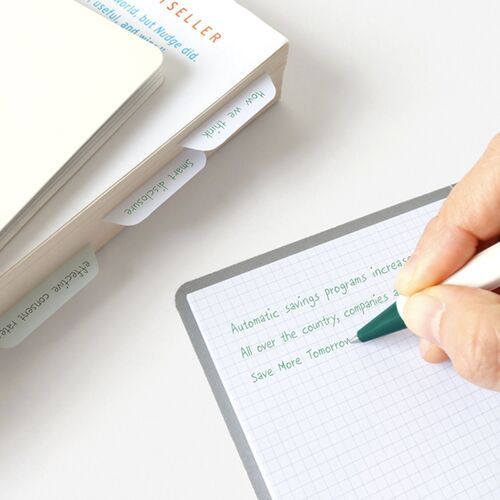 TSELLER
world, but Nudge did.
useful, and
How we think
Smart disclosure
effective consent rates
Automatic savings programs increase
All over the country, companies
Save More Tomorrow